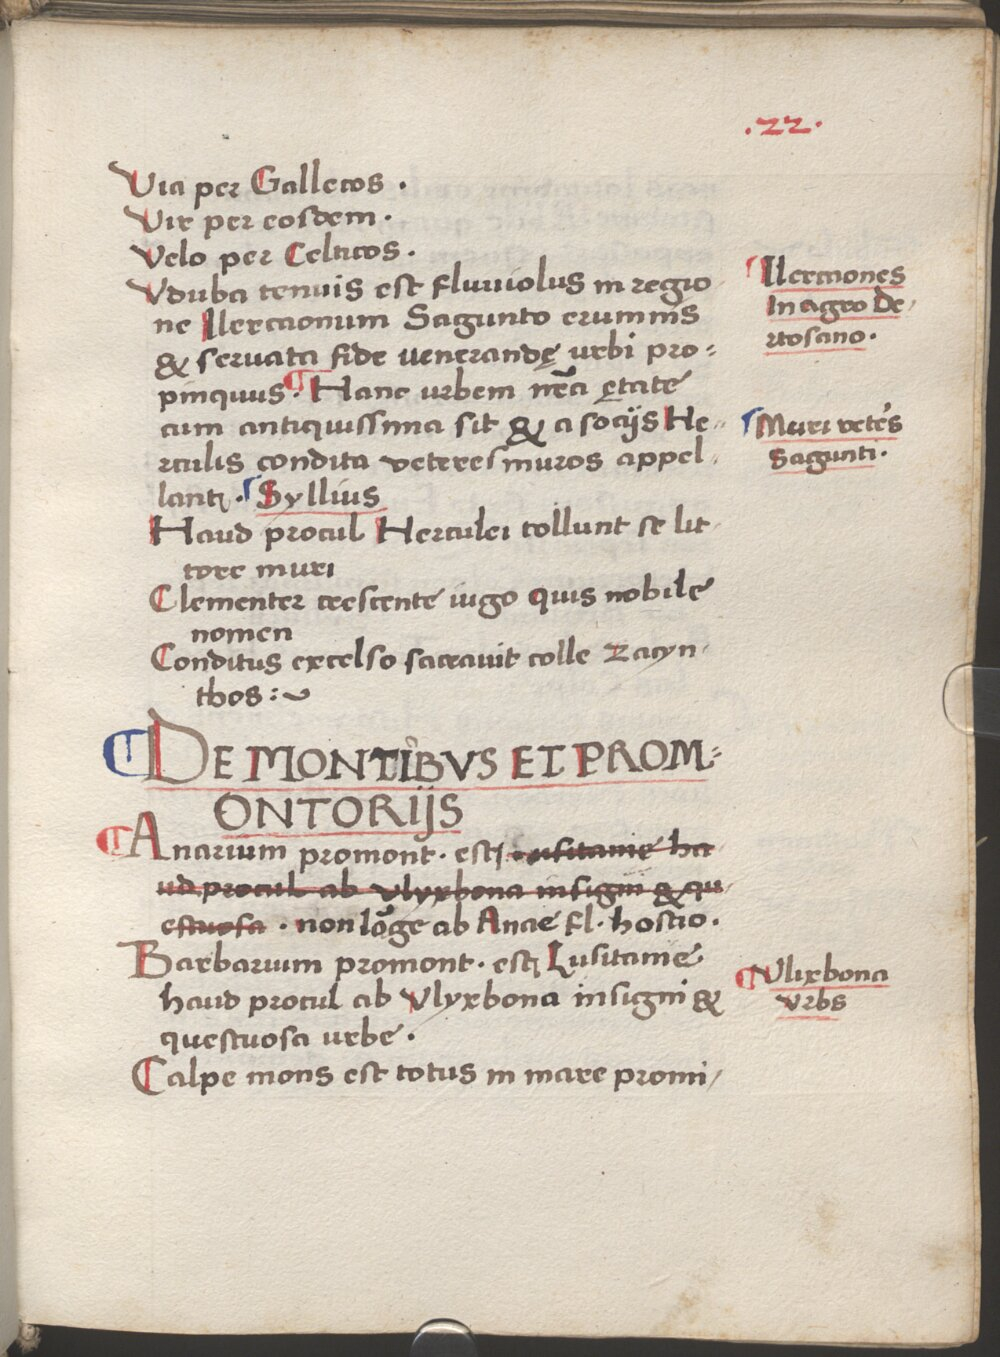 .22.
Via per Gallecos .
Vir per eosdem.
Velo per Celticos.
Vduba tenuis est fluviolus in regio
ne Ilercaonum Sagunto erumnis
& servata fide venerandę urbi pro:
pinquus. Hanc urbem nr̃a ętate
cum antiquissima sit & a socijs He-
rculis condita veteres muros appel-
lant. Syllius
Haud procul Herculei tollunt se lit-
tore muri
Clementer crescente iugo quis nobile
nomen
Conditus excelso sacravit colle Zacyn-
thos:
DE MONTIBVS ET PROM:
ONTORIJS
Anarium promont. est usitanię ha
ud procul ab Vlyxbona insigni & qu
estuosa . non lõge ab Anae fl. hostio.
Barbarium promont. est Lusitanię
haud procul ab Vlyxbona insigni &
questuosa urbe.
Calpe mons est totus in mare promi/
Ilercaones
in agro De-
rtosano.
Muri veteres
Sagunti.
Vlixbona
Vrbs